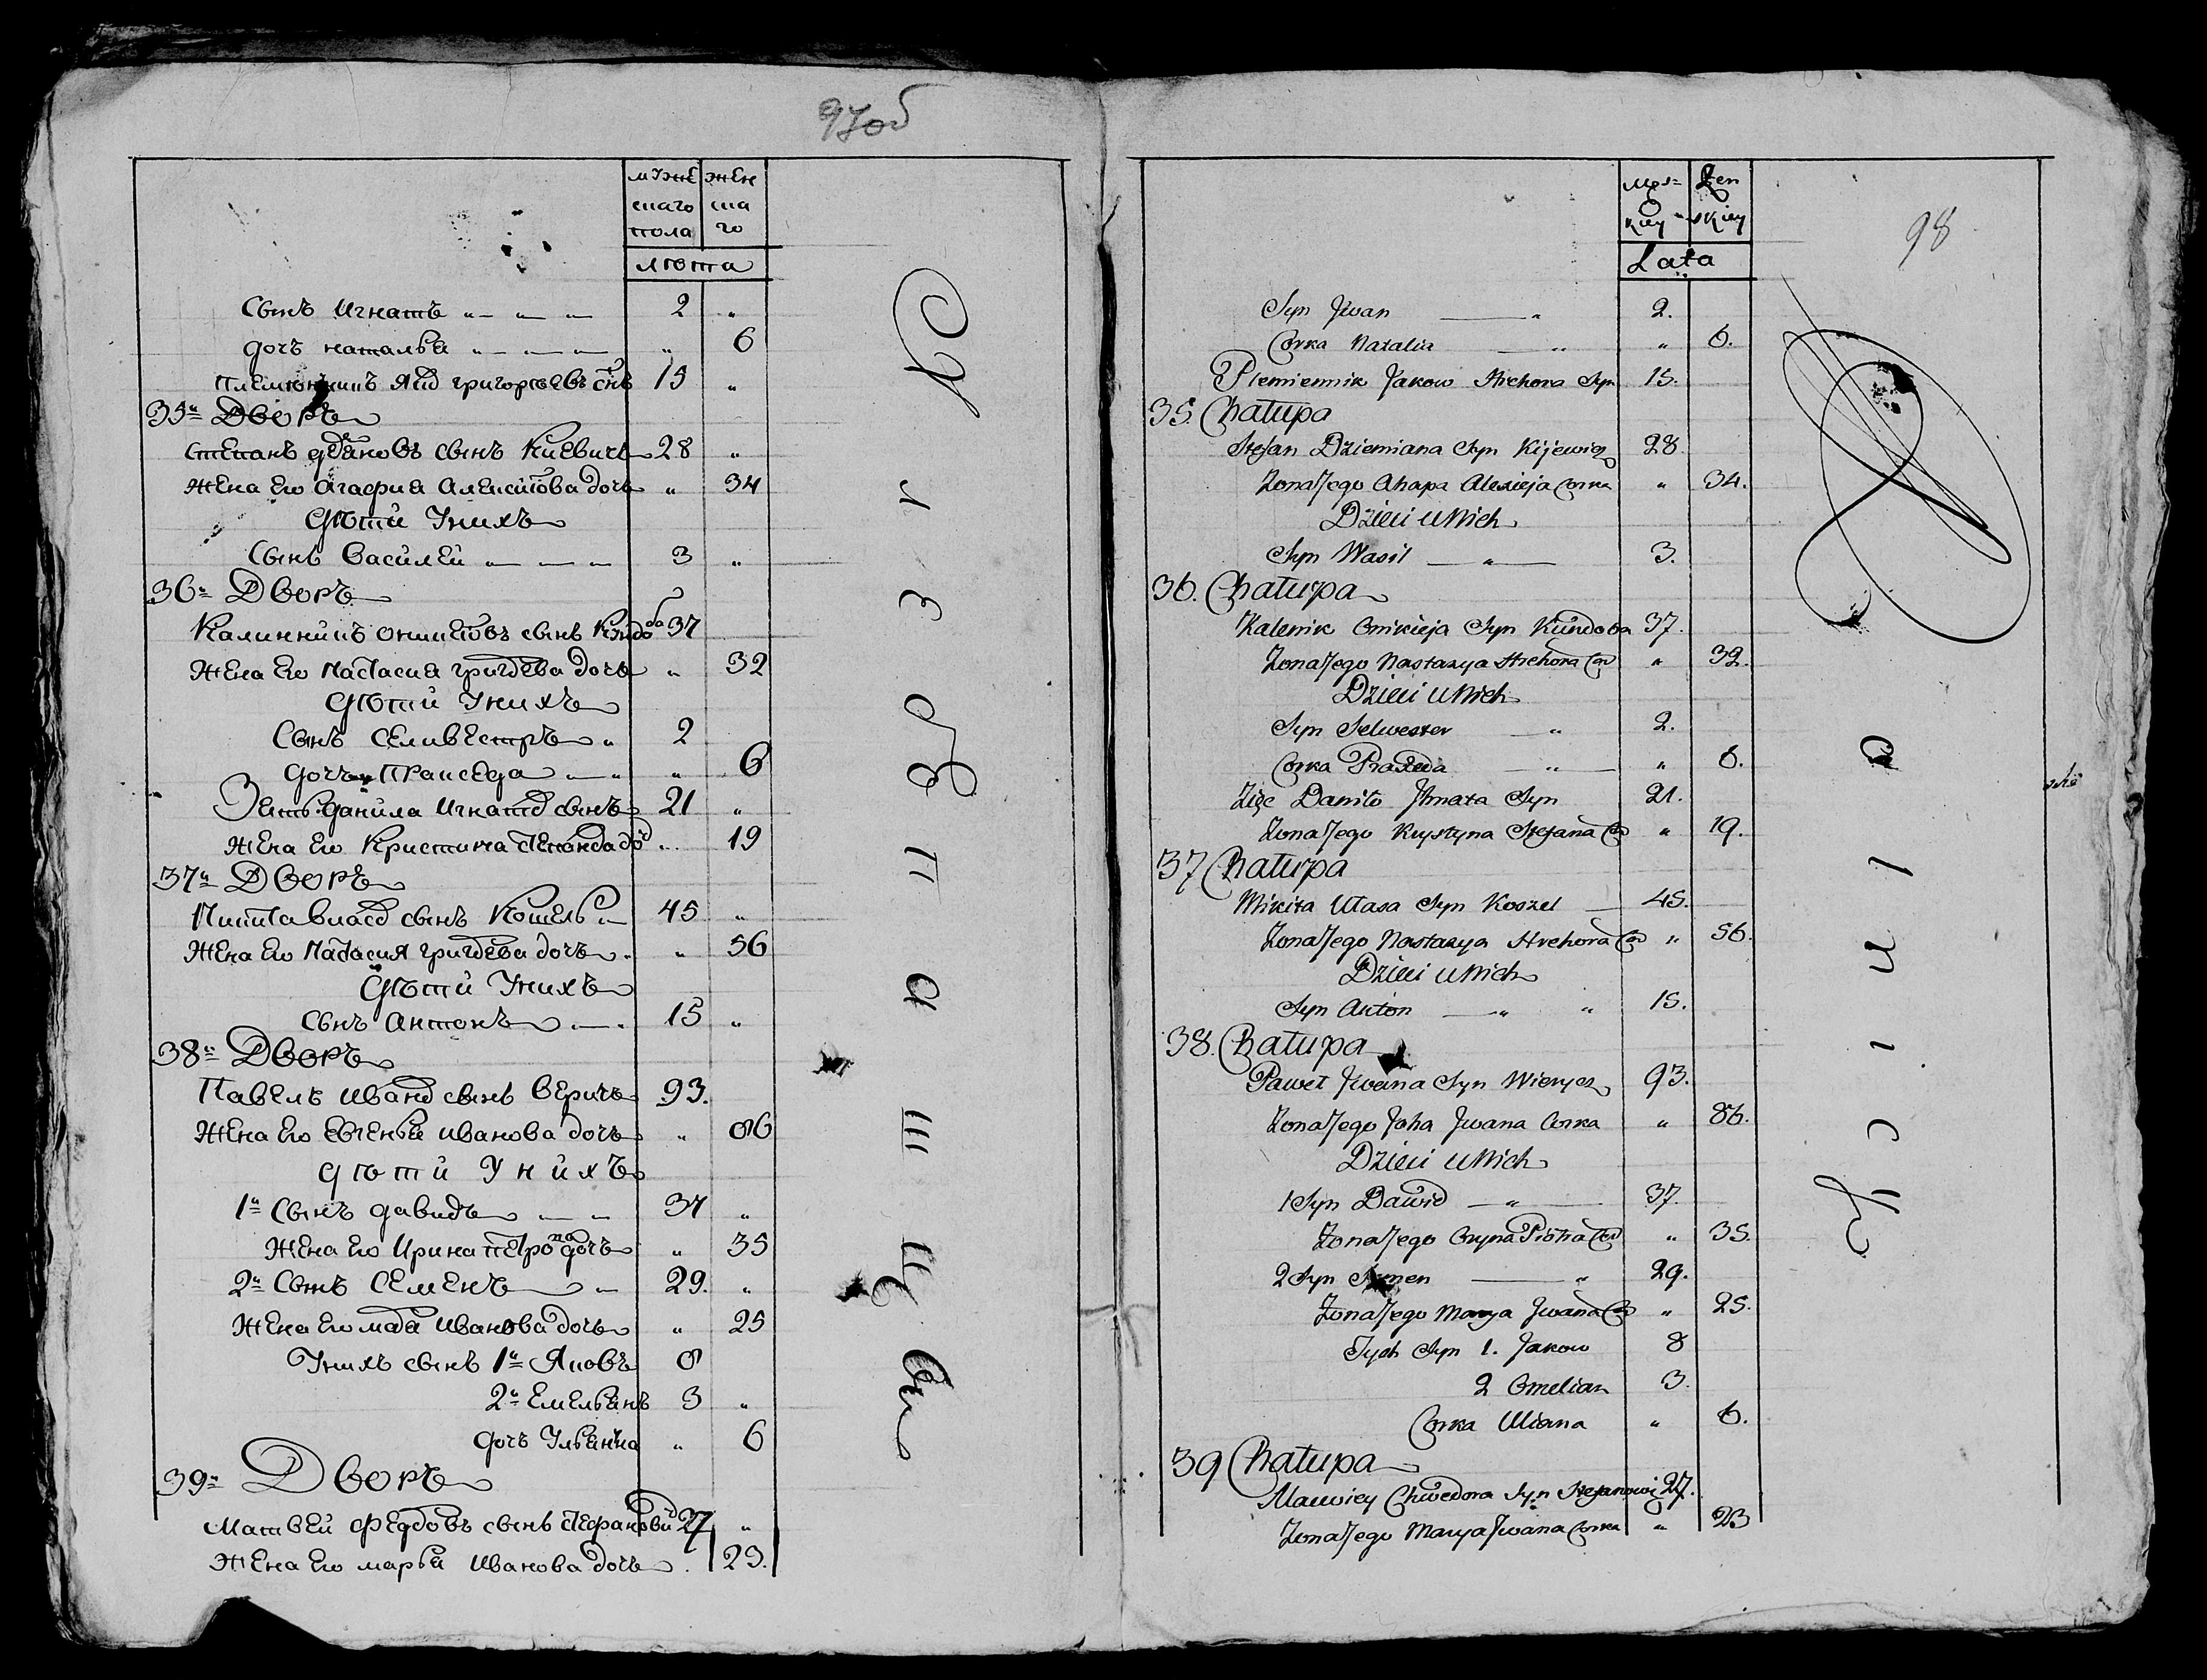 97об
мужескаго пола женскаго
лѣта
Сынъ Игнатъ 2
дочь наталья 6
племянникъ Яковъ григорьевъ снъ 15
35й Дворъ
Степанъ сынъ Киевичъ 28
Жена его Агафия Алексѣева дочь 34
Дѣти у нихъ
Сынъ Василей 3
36й Дворъ
Калинникъ сынъ Кундоба 37
Жена его Настасия григорева дочь 32
Дѣти у нихъ
Сынъ Селивестръ 2
дочь Пракседа 6
Зять данила Игнатовъ сынъ 21
Жена его Кристина Степанова доч 19
37й Дворъ
Никита власовъ сынъ Кошель 45
Жена его Настасия григорева дочь 56
Дѣти у нихъ
Снъ Антонъ 15
38й Дворъ
Павелъ Ивановъ сынъ Веричъ 93.
Жена его Евгенья иванова дочь 86
дѣти у нихъ
1й Сынъ давидъ 37
Жена его Ирина петрова дочь 35
2й Сынъ Семенъ 29.
Жена его Иванова дочь 25
У нихъ сынъ 1й Яковъ 8
2й Емельянъ 3
дочь Ульянна 6
39й Дворъ
Матвей Федоровъ сынъ Стефанович 27
Жена его марья Иванова дочь 23.
98
Męskiey Zenskiey
Lata
Syn Jwan 2.
Corka Natalia 6.
Plemiennik Jakow Hrehora Syn 15.
35. Chałupa
Stefan Dziemiana Syn Kijewicz 28.
Zona Jego Ahapa Alexieja Corka 34.
Dzieci u Nich
Syn Wasil 3.
36. Chałupa
Kalenik Onikieja Syn Kundoba 37.
Zona Jego Nastazya Hrehora Cor 32.
Dzieci u Nich
Syn Selwester 2.
Corka Praxeda 6.
Zięc Daniło Jhnata Syn 21.
Zona Jego Krystyna Stefana Cor 19.
37 Chałupa
Mikita Ułasa Syn Koszel 45.
Zona Jego Nastazya Hrehora Cor 56.
Dzieci u Nich
Syn Anton 15.
38. Chałupa
Paweł Jwana Syn Wierycz 93.
Zona Jego Joha Jwana Corka 86.
Dzieci u Nich
1 Syn Dawid 37.
Zona Jego Oryna Piotra Cor 35.
2 Syn Semen 29.
Zona Jego Marya Jwana Cor 25.
Tych Syn 1. Jakow 8
2 Omelian 3.
Corka Uliana 6.
39 Chałupa
Maciwiey Chwedora Syn Stefanowicz 27.
Zona Jego Marya Jwana Corka 23